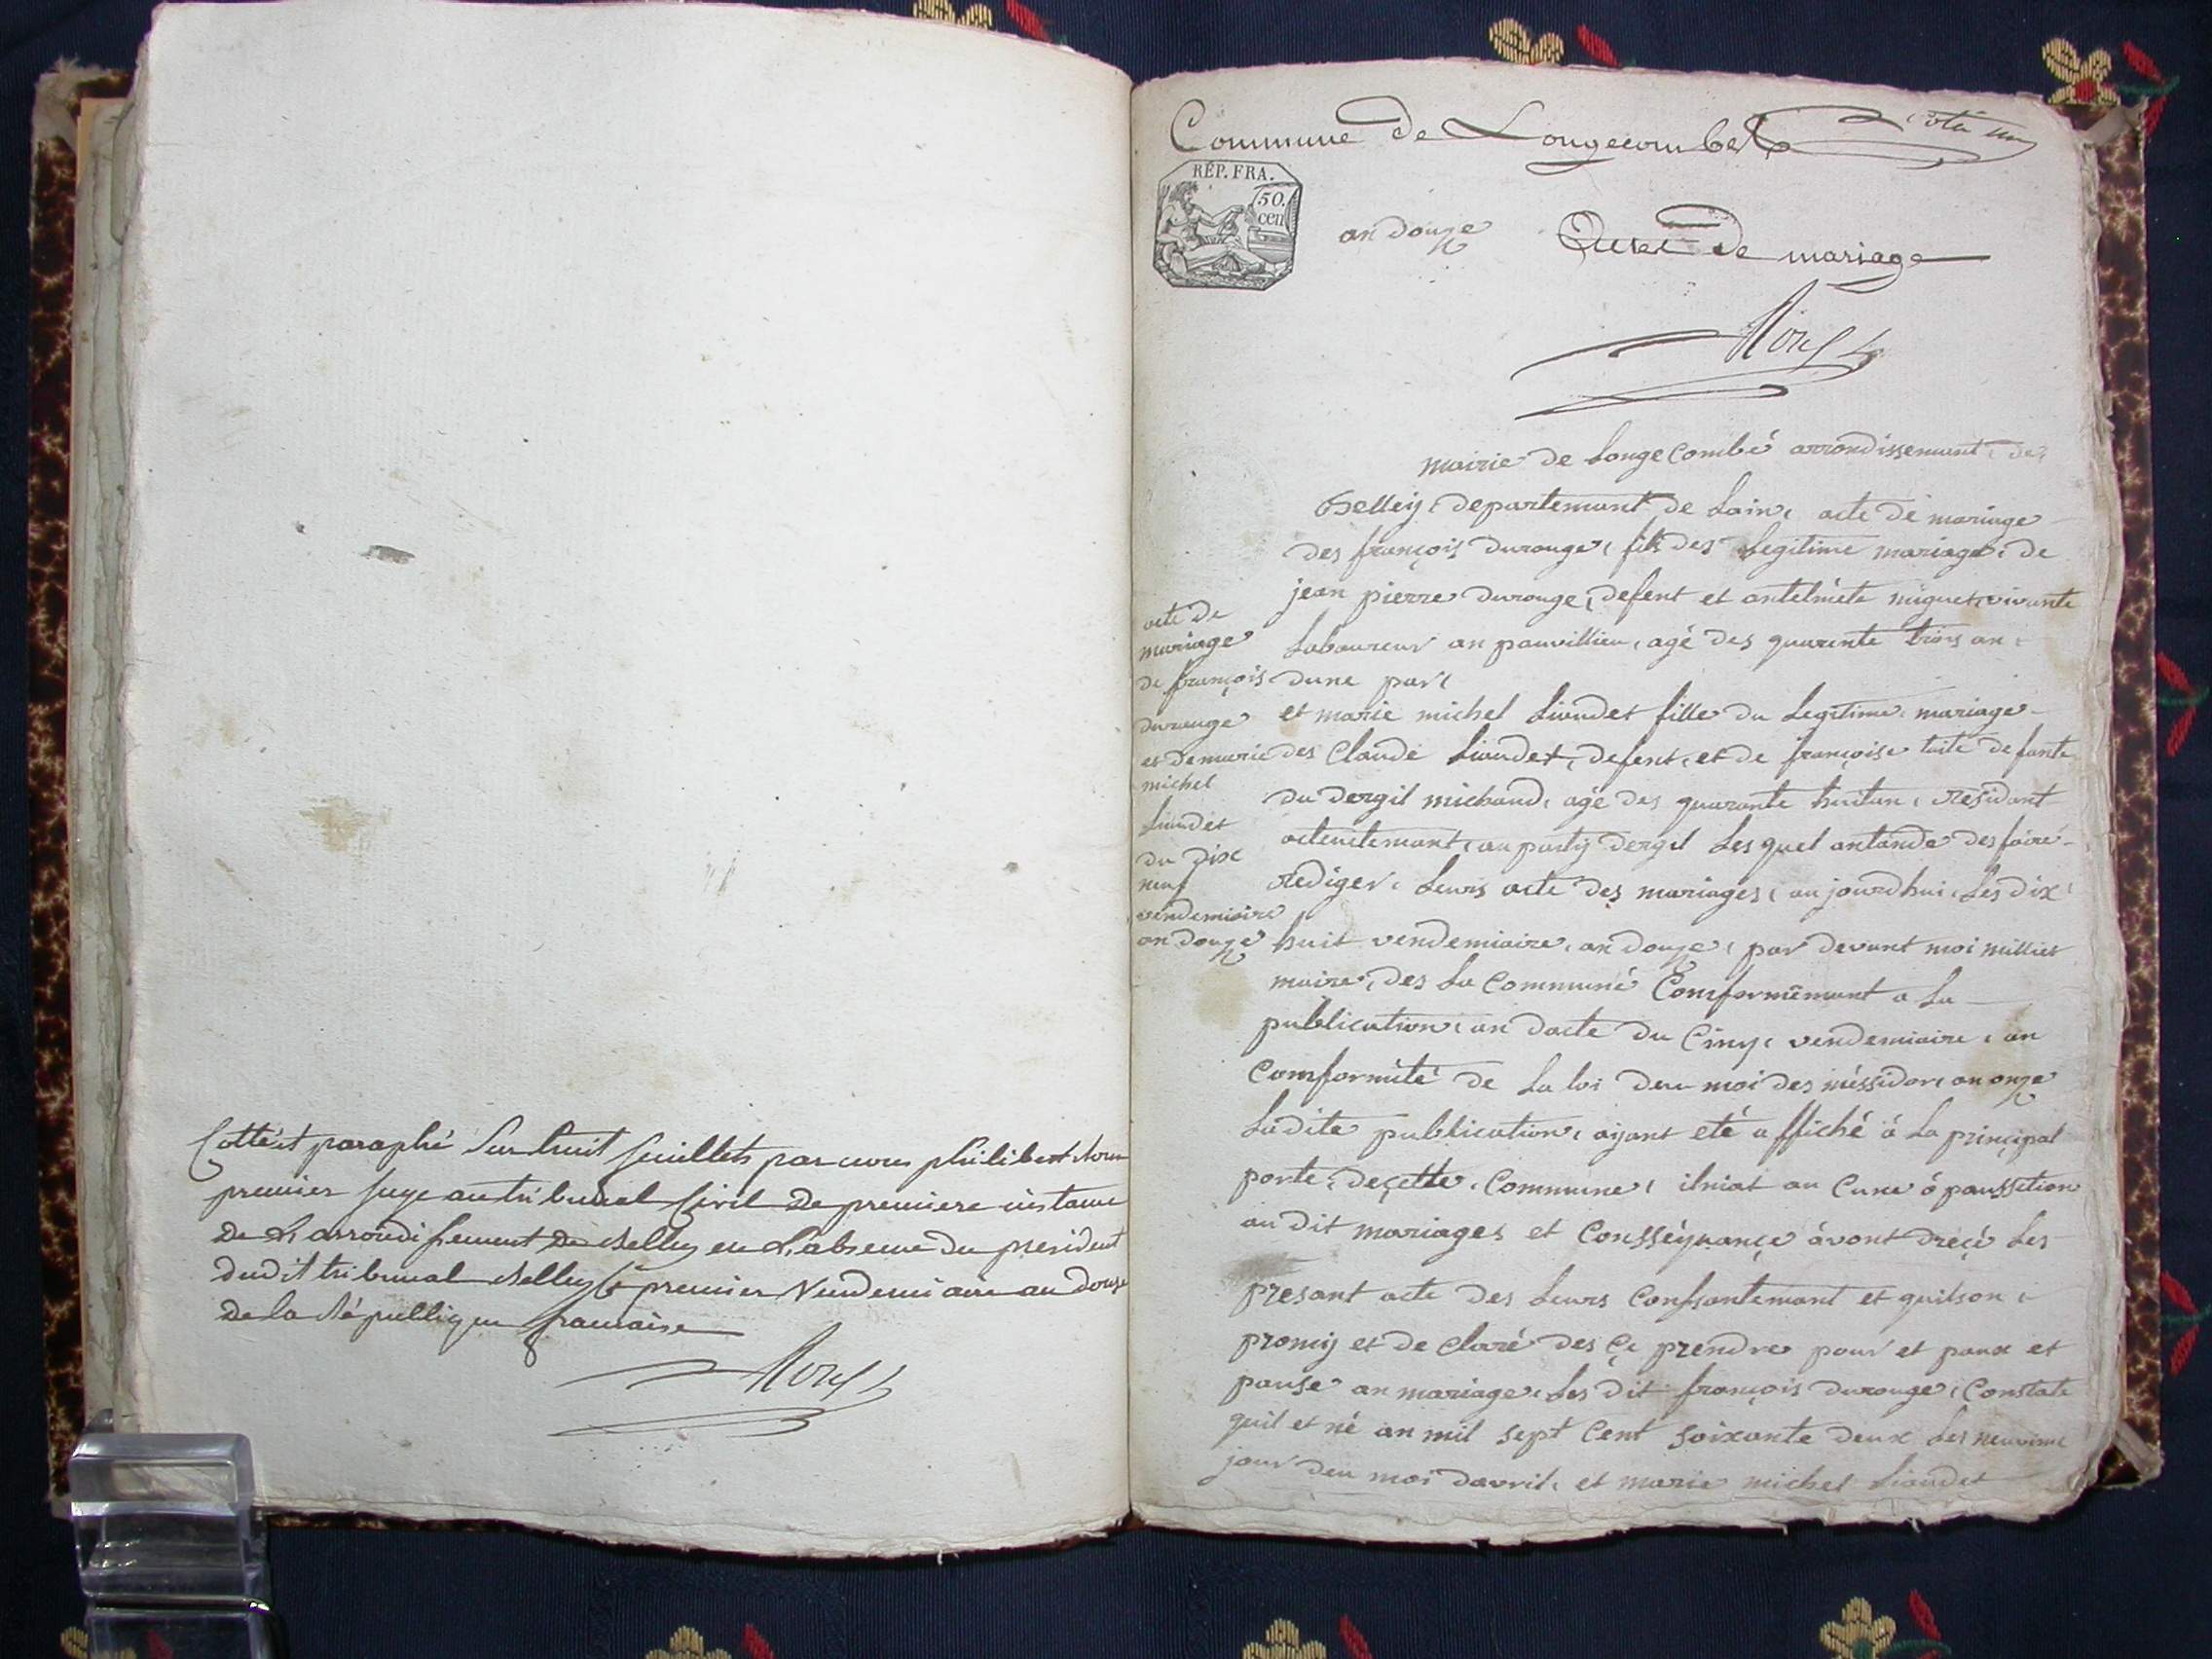 Cotté et paraphé sur huit feuillets par nous philibert
premier juge au tribunal Civil de premiere instance
de L'arrondissement de Belley en L'absence du president
dudit tribunal Belley le premier Vendemiaire an douze
de la République francaise
Commune de Longecombe
Coté un
RÉP. FRA.
50.
cen
an douze
Actes de mariage
mairie de Longecombé arrondissement de
Belley departemant de Lain, acte de mariage
des françois durouge, fils des Legitime mariage de
jean pierre durouge, defent et antelmète miguet vivante
Laboureur an pauvillieu, agé des quarente trois an
dune part
et marie michel Liaudet fille du Legitime mariage
des Claude Liaudet, defent, et de françoise defante
du dergil michaud, agé des quarante huitan, residant
au party dergil Lesquel antande des faire
rediger Leurs acte des mariages, aujourdhui, Les dix
huit vendemiaire, an douze, par devant moi milliet
maire, des La Communé Comformémant a La
publication, an dacte du Cinq, vendemiaire, an
Comformité de La loi deu moi des méssidor, an onze
Ladite publication, aÿant eté affiché á La principal
porte, deçette, Commune, ilniat au Cune ópaussition
au dit mariages et Conssequançe ávont dreçé Les
presant acte des Leurs Conssantemant et quilson
promis et de claré des çe prendre pour et poux et
pause an mariage, Les dit françois durouge, Constate
quil et né an mil sept Cent soixante deux Les neuvime
jour deu moi davril, et marie michel Liaudet
acte de
mariage
de françois
durouge
et de marie
michel
Liaudet
du dix
neuf
vendemiaire
an douze